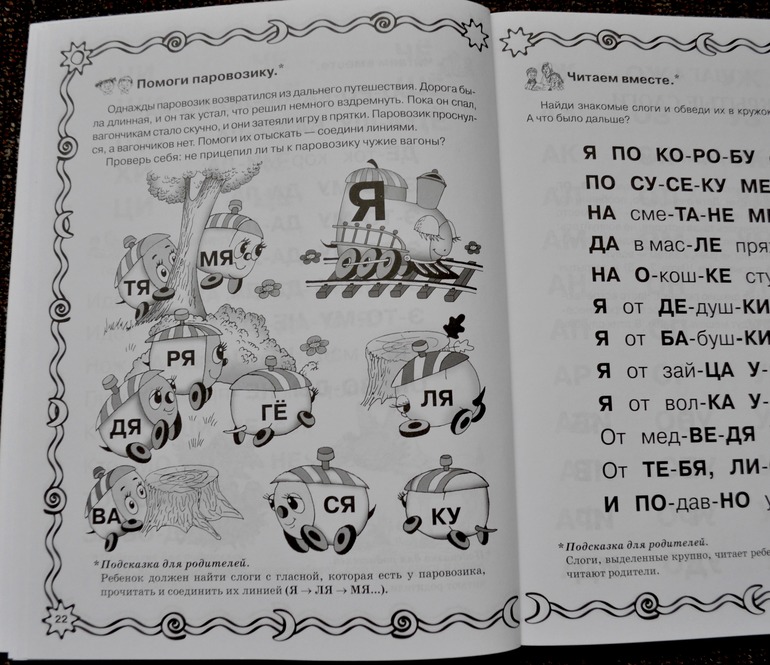 Помоги паровозику.*
Однажды паровозик возвратился из дальнего путешествия. Дорога бы-
ла длинная, и он так устал, что решил немного вздремнуть. Пока он спал,
вагончикам стало скучно, и они затеяли игру в прятки. Паровозик проснул-
ся, а вагончиков нет. Помоги их отыскать — соедини линиями.
Проверь себя: не прицепил ли ты к паровозику чужие вагоны?
Я
МЯ
ТЯ
РЯ
ДЯ
ГЁ
ЛЯ
ВА
СЯ
КУ
*Подсказка для родителей.
Ребенок должен найти слоги с гласной, которая есть у паровозика,
прочитать и соединить их линией (Я → ЛЯ → МЯ...).
22
Читаем вместе.*
Найди знакомые слоги и обведи их в кружо
А что было дальше?
Я ПО КО-РО-БУ
ПО СУ-СЕ-КУ МЕ
НА сме-ТА-НЕ
ДА в мас-ЛЕ пря
НА О-кош-КЕ сту
Я от ДЕ-душ-КИ
Я от БА-буш-КИ
Я от зай-ЦА У-
Я от вол-КА У-
От мед-ВЕ-ДЯ
От ТЕ-БЯ, ЛИ-
И ПО-дав-НО
*Подсказка для родителей.
Слоги, выделенные крупно, читает ребе
читают родители.